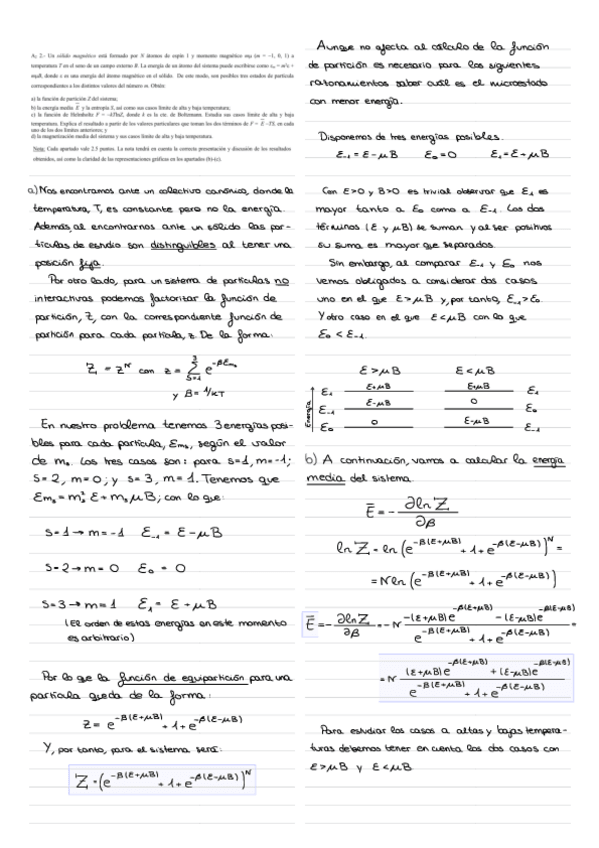 A; 2.- Un sólido magnético está formado por N átomos de espín 1 y momento magnético mμ (m = −1, 0, 1) a
temperatura T en el seno de un campo externo B. La energía de un átomo del sistema puede escribirse como εm = m²ε +
mμB, donde ε es una energía del átomo magnético en el sólido. De este modo, son posibles tres estados de partícula
correspondientes a los distintos valores del número m. Obtén:
a) la función de partición Z del sistema;
b) la energía media E̅ y la entropía S, así como sus casos límite de alta y baja temperatura;
c) la función de Helmholtz F = −kTlnZ, donde k es la cte. de Boltzmann. Estudia sus casos límite de alta y baja
temperatura. Explica el resultado a partir de los valores particulares que toman los dos términos de F = E̅ −TS, en cada
uno de los dos límites anteriores; y
d) la magnetización media del sistema y sus casos límite de alta y baja temperatura.
Nota: Cada apartado vale 2.5 puntos. La nota tendrá en cuenta la correcta presentación y discusión de los resultados
obtenidos, así como la claridad de las representaciones gráficas en los apartados (b)-(c).
a) Nos encontramos ante un colectivo canónico, donde la
temperatura, T, es constante pero no la energía.
Además, al encontrarnos ante un sólido las par-
tículas de estudio son distinguibles al tener una
posición fija.
Por otro lado, para un sistema de partículas no
interactivas podemos factorizar la función de
partición, Z, con la correspondiente función de
partición para cada partícula, z. De la forma:
Z = z^N con z = Σ_{s=1}^{3} e^{-βE_{ms}}
y β = 1/kT
En nuestro problema tenemos 3 energías posi-
bles para cada partícula, E_{ms}, según el valor
de m_s. Los tres casos son: para s=1, m=-1;
s=2, m=0; y s=3, m=1. Tenemos que
E_{ms} = m_s² E + m_s μB; con lo que:
s=1 → m=-1 E_{-1} = E - μB
s=2 → m=0 E_0 = 0
s=3 → m=1 E_1 = E + μB
(El orden de estas energías en este momento
es arbitrario)
Por lo que la función de equipartición para una
partícula queda de la forma:
z = e^{-β(E+μB)} + 1 + e^{-β(E-μB)}
Y, por tanto, para el sistema será:
Z = (e^{-β(E+μB)} + 1 + e^{-β(E-μB)})^N
Aunque no afecta al cálculo de la función
de partición es necesario para los siguientes
razonamientos saber cuál es el microestado
con menor energía.
Disponemos de tres energías posibles.
E_{-1} = E - μB E_0 = 0 E_1 = E + μB
Con E>0 y B>0 es trivial observar que E_1 es
mayor tanto a E_0 como a E_{-1}. Los dos
términos (E y μB) se suman y al ser positivos
su suma es mayor que separados.
Sin embargo, al comparar E_{-1} y E_0 nos
vemos obligados a considerar dos casos
uno en el que E > μB y, por tanto, E_{-1} > E_0.
Y otro caso en el que E < μB con lo que
E_0 < E_{-1}.
E > μB E < μB
Energía
E_1 E+μB E+μB E_1
E_{-1} E-μB 0 E_0
E_0 0 E-μB E_{-1}
b) A continuación, vamos a calcular la energía
media del sistema.
E̅ = - ∂ln Z / ∂β
ln Z = ln (e^{-β(E+μB)} + 1 + e^{-β(E-μB)})^N =
= N ln (e^{-β(E+μB)} + 1 + e^{-β(E-μB)})
E̅ = - ∂ln Z / ∂β = - N (-(E+μB)e^{-β(E+μB)} - (E-μB)e^{-β(E-μB)}) / (e^{-β(E+μB)} + 1 + e^{-β(E-μB)}) =
= N ((E+μB)e^{-β(E+μB)} + (E-μB)e^{-β(E-μB)}) / (e^{-β(E+μB)} + 1 + e^{-β(E-μB)})
Para estudiar los casos a altas y bajas tempera-
turas debemos tener en cuenta los dos casos con
E > μB y E < μB.